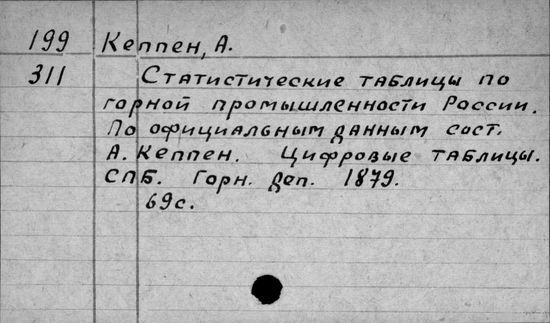 199 Кеппен, А.
311 Статистические таблицы по
горной промышленности России.
По официальным данным сост.
А. Кеппен. Цифровые таблицы.
СПБ. Горн. деп. 1879.
69с.